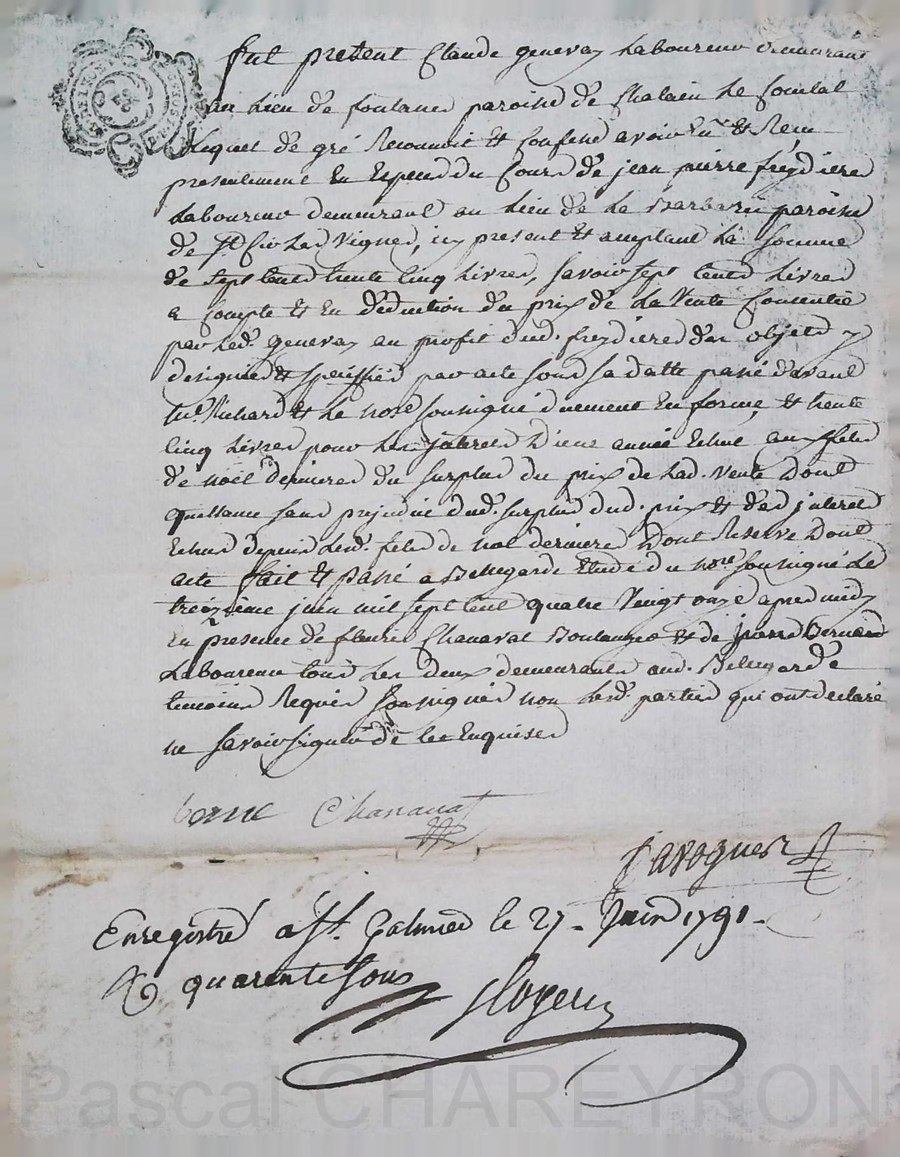 fut présent Claude genevay Laboureur demeurant
au Lieu de fontanes paroisse de Chalain Le Comtal
Lequel de gré Reconnoit et Confesse avoir Eu et Reçu
presentement En Especes du Cours de jean pierre freydiere
Laboureur demeurant au Lieu de La paroisse
de St Cir Les Vignes, icy present et acceptant La Somme
de Sept Cents trente Cinq Livres, Savoir Sept Cents Livres
a Compte et En déduction du prix de La Vente Consentie
par Led. genevay au profit dud. freydiere des objets y
designés et Speciffiés par acte Sous Sa datte passé devant
Me Richard et Le nore Soussigné duement En forme, et trente
Cinq Livres pour Les interets D'une année Echue aux fetes
de noël dernieres du Surplus du prix de Lad. Vente Dont
quittance Sans prejudice dud. Surplus dud. prix et des interets
Echus depuis Lesd. fetes de noel dernieres Dont Reserve Dont
acte fait et passé a Bellegarde Etude du nore Soussigné Le
treizième juin mil Sept Cent quatre Vingt onze apres midy
En presence de fleurie Chanavat Boulanger et de pierre
Laboureur tous Les deux demeurants aud. Bellegarde
temoins Requis Soussignés non Lesd. parties qui ont declaré
ne Savoir Signer de Ce Enquises
berne Chanavat
Enregistré a St. Galmier le 27 - Juin 1791 -
quarente Sous
Pascal CHAREYRON